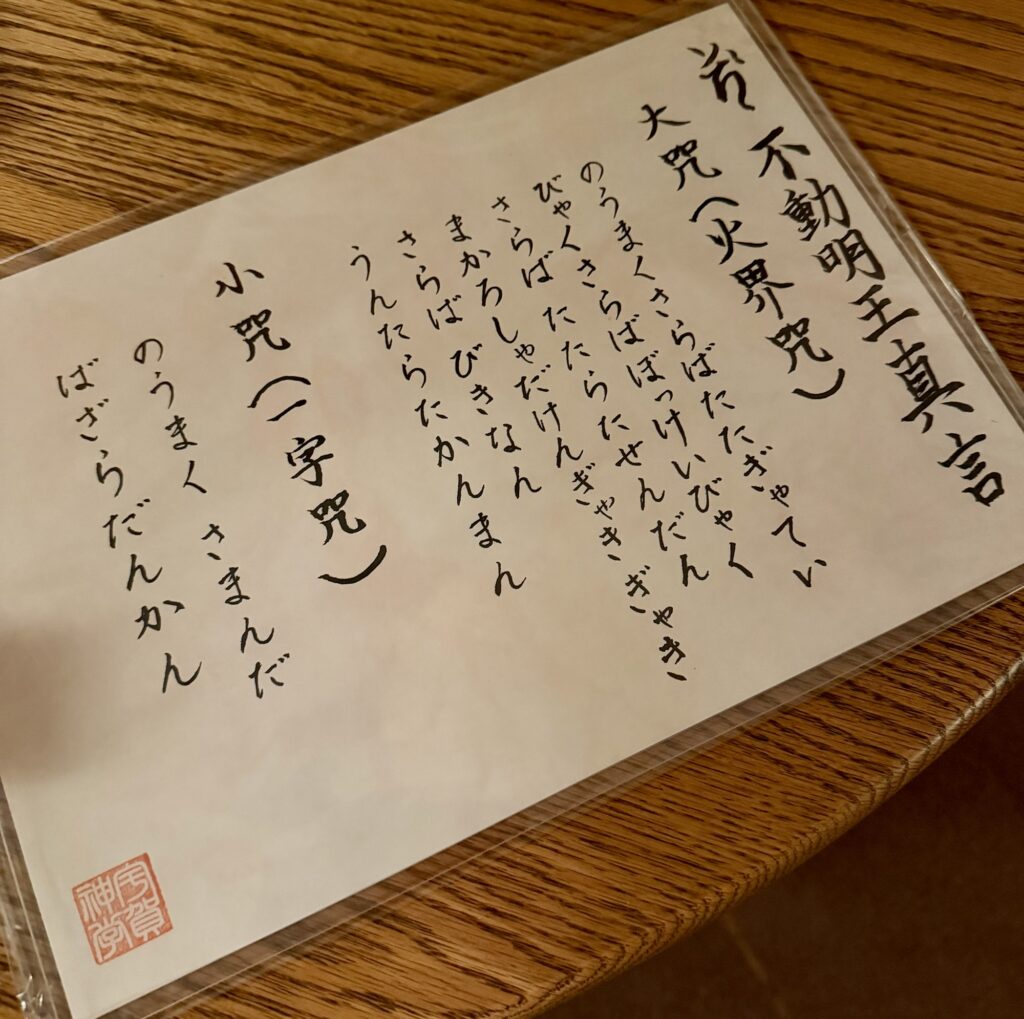 不動明王真言
大咒(火界咒)
のうまくさらばたたぎゃてい
びゃくさらばぼっけいびゃく
さらば たたらたせんだん
まかろしゃだけんぎゃきぎゃき
さらば びきなん
うんたらたかんまん
小咒(一字咒)
のうまく さまんだ
ばざらだんかん